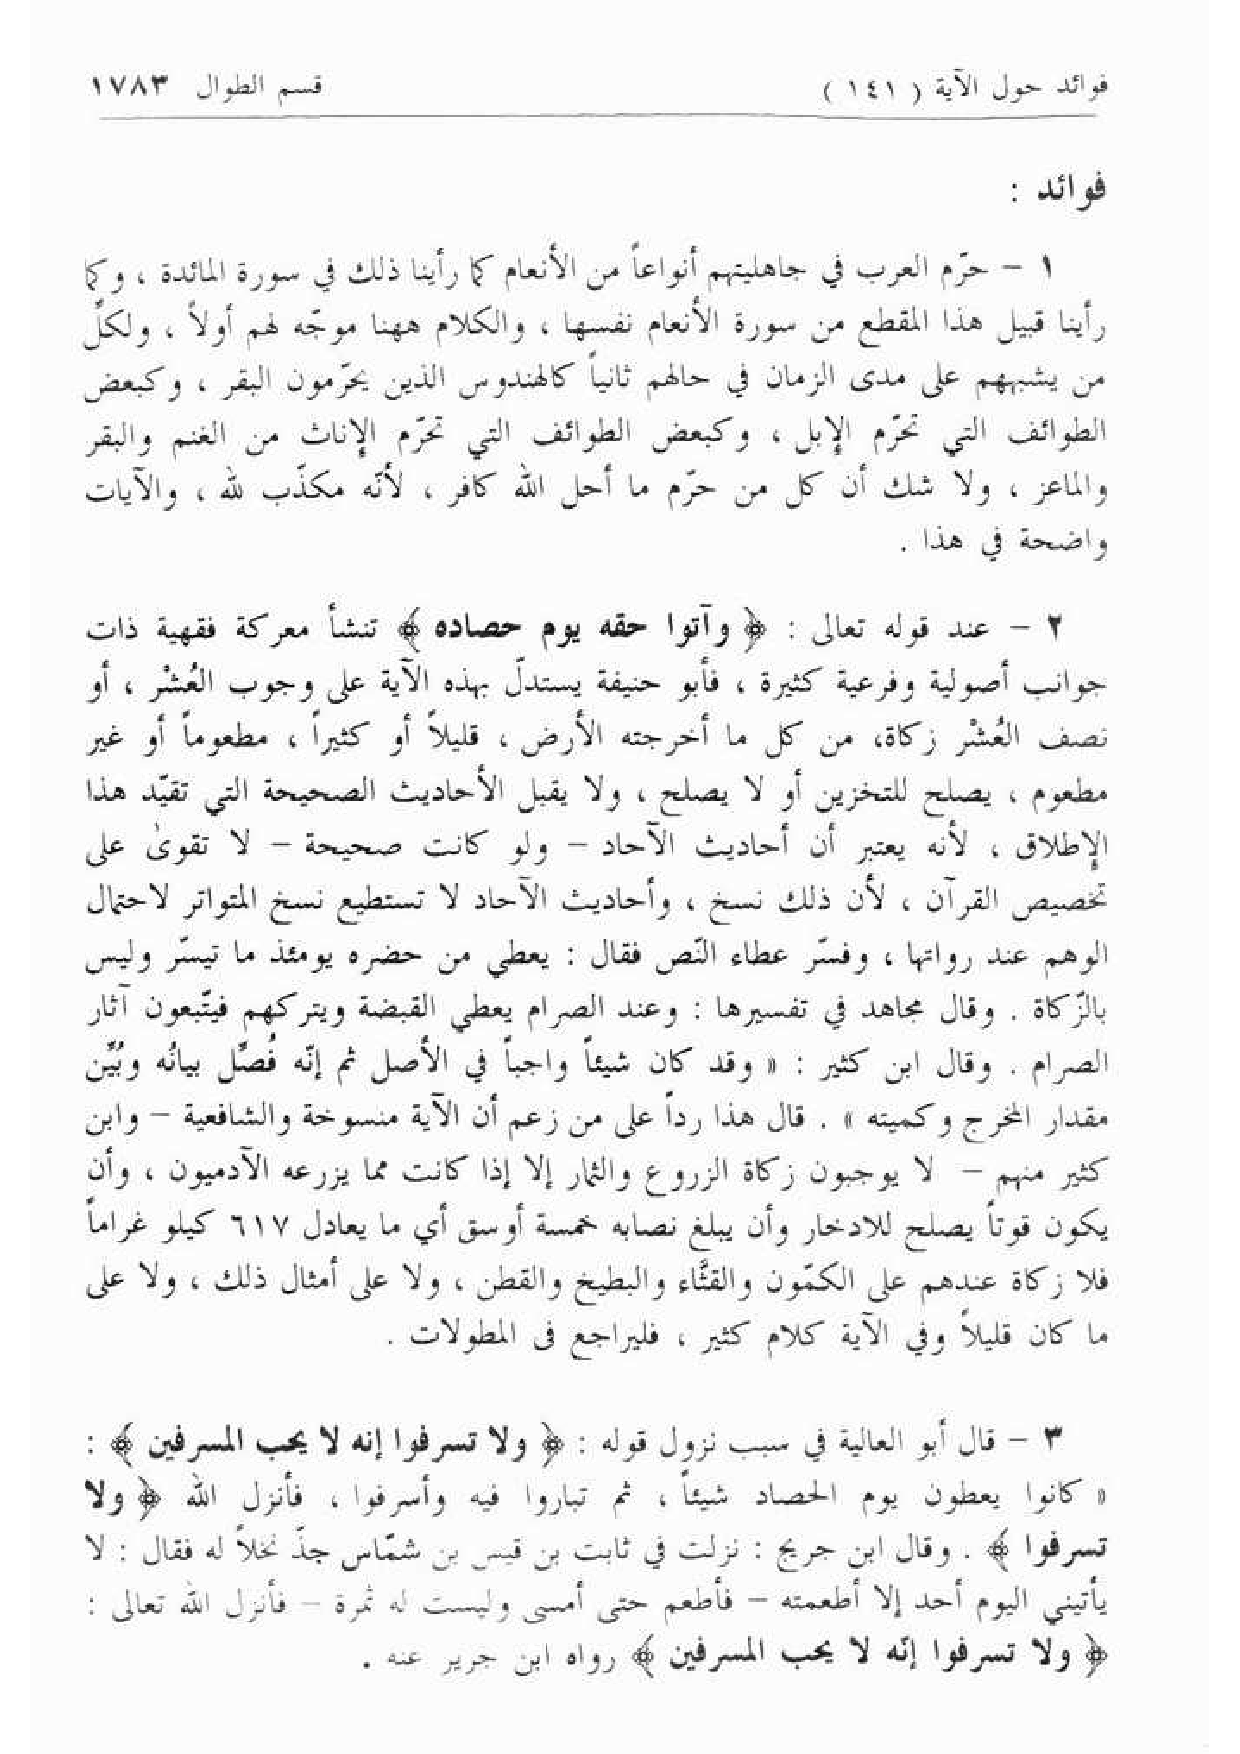 فوائد حول الآية ( ١٤١ ) قسم الطوال ١٧٨٣
فوائد :
١ – حرّم العرب في جاهليتهم أنواعاً من الأنعام كما رأينا ذلك في سورة المائدة ، وكما
رأينا قبيل هذا المقطع من سورة الأنعام نفسها ، والكلام ههنا موجّه لهم أولاً ، ولكلِّ
من يشبههم على مدى الزمان في حالهم ثانياً كالهندوس الذين يحرّمون البقر ، وكبعض
الطوائف التي تحرّم الإبل ، وكبعض الطوائف التي تحرّم الإناث من الغنم والبقر
والماعز ، ولا شك أن كل من حرّم ما أحل الله كافر ، لأنّه مكذّب لله ، والآيات
واضحة في هذا .
٢ – عند قوله تعالى : ﴿ وآتوا حقه يوم حصاده ﴾ تنشأ معركة فقهية ذات
جوانب أصولية وفرعية كثيرة ، فأبو حنيفة يستدلّ بهذه الآية على وجوب العُشْر ، أو
نصف العُشْر زكاة، من كل ما أخرجته الأرض ، قليلاً أو كثيراً ، مطعوماً أو غير
مطعوم ، يصلح للتخزين أو لا يصلح ، ولا يقبل الأحاديث الصحيحة التي تقيّد هذا
الإطلاق ، لأنه يعتبر أن أحاديث الآحاد – ولو كانت صحيحة – لا تقوىٰ على
تخصيص القرآن ، لأن ذلك نسخ ، وأحاديث الآحاد لا تستطيع نسخ المتواتر لاحتمال
الوهم عند رواتها ، وفسّر عطاء النّص فقال : يعطي من حضره يومئذ ما تيسّر وليس
بالزّكاة . وقال مجاهد في تفسيرها : وعند الصرام يعطي القبضة ويتركهم فيتّبعون آثار
الصرام . وقال ابن كثير : « وقد كان شيئاً واجباً في الأصل ثم إنّه فُصِّل بيانُه وبُيِّن
مقدار المخرج وكميته » . قال هذا رداً على من زعم أن الآية منسوخة والشافعية – وابن
كثير منهم – لا يوجبون زكاة الزروع والثمار إلا إذا كانت مما يزرعه الآدميون ، وأن
يكون قوتاً يصلح للادخار وأن يبلغ نصابه خمسة أوسق أي ما يعادل ٦١٧ كيلو غراماً
فلا زكاة عندهم على الكمّون والقثَّاء والبطيخ والقطن ، ولا على أمثال ذلك ، ولا على
ما كان قليلاً وفي الآية كلام كثير ، فليراجع في المطولات .
٣ – قال أبو العالية في سبب نزول قوله : ﴿ ولا تسرفوا إنه لا يحب المسرفين ﴾ :
« كانوا يعطون يوم الحصاد شيئاً ، ثم تباروا فيه وأسرفوا ، فأنزل الله ﴿ ولا
تسرفوا ﴾ . وقال ابن جريج : نزلت في ثابت بن قيس بن شمّاس جذّ نخلاً له فقال : لا
يأتيني اليوم أحد إلا أطعمته – فأطعم حتى أمسى وليست له ثمرة – فأنزل الله تعالى :
﴿ ولا تسرفوا إنّه لا يحب المسرفين ﴾ رواه ابن جرير عنه .